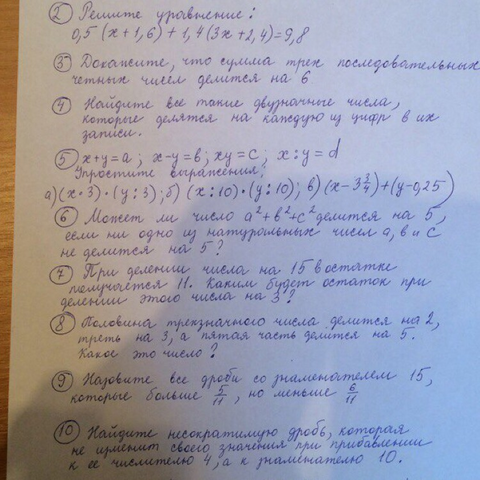 ② Решите уравнение:
0,5(x+1,6)+1,4(3x+2,4)=9,8
③ Докажите, что сумма трех последовательных
четных чисел делится на 6
④ Найдите все такие двузначные числа,
которые делятся на каждую из цифр в их
записи.
⑤ x+y=a; x-y=b; xy=c; x:y=d
Упростите выражения:
а)(x·3)·(y:3); б)(x:10)·(y:10); в)(x-3 3/4)+(y-0,25)
⑥ Может ли число a²+b²+c² делится на 5,
если ни одно из натуральных чисел a, b и c
не делится на 5?
⑦ При делении числа на 15 в остатке
получается 11. Каким будет остаток при
делении этого числа на 3?
⑧ Половина трехзначного числа делится на 2,
треть на 3, а пятая часть делится на 5.
Какое это число?
⑨ Назовите все дроби со знаменателем 15,
которые больше 5/11, но меньше 6/11
⑩ Найдите несократимую дробь, которая
не изменит своего значения при прибавлении
к ее числителю 4, а к знаменателю 10.